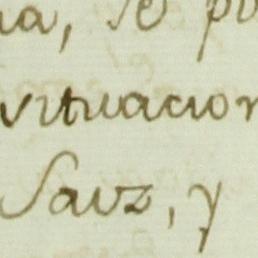 na, se pu
situacion
Sauz, y